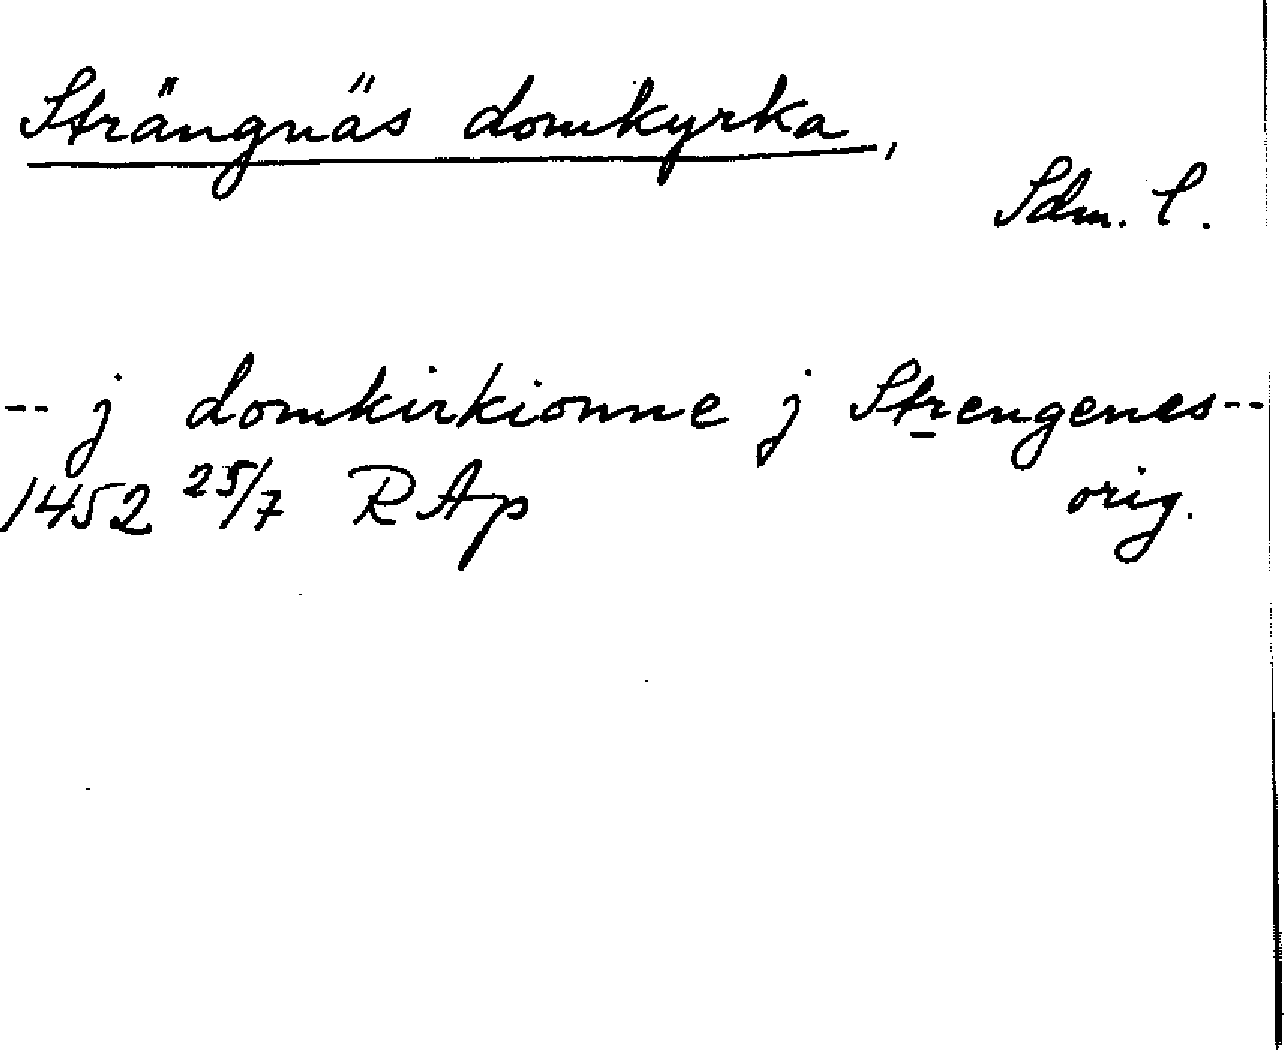 Strängnäs domkyrka,
Sdm. l.
-- j domkirkionne j Strengenes--
1452 25/7 RAp orig.